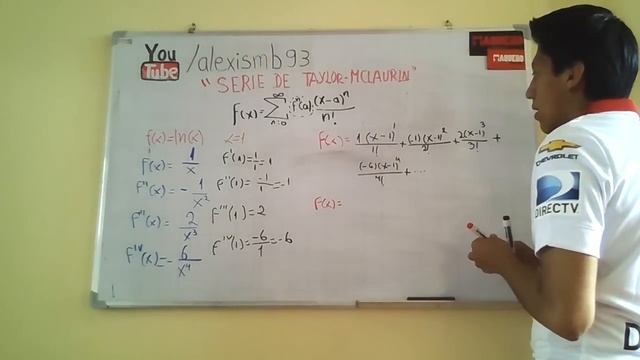 You Tube /alexismb93
"SERIE DE TAYLOR-MCLAURIN"
f(x)= ∞ ∑ n=0 fⁿ(a)·(x-a)ⁿ / n!
f(x)=ln(x) x=1
f'(x)= 1/x f'(1)=1/1=1
f''(x)= -1/x² f''(1)=-1/1=-1
f'''(x)= 2/x³ f'''(1)=2
f'ⱽ(x)=-6/x⁴ f'ⱽ(1)=-6/1=-6
f(x)= 1(x-1)¹/1! + (-1)(x-1)²/2! + 2(x-1)³/3! +
(-6)(x-1)⁴/4! + ...
f(x)=
MAQUERO
CHEVROLET
DIRECTV
D